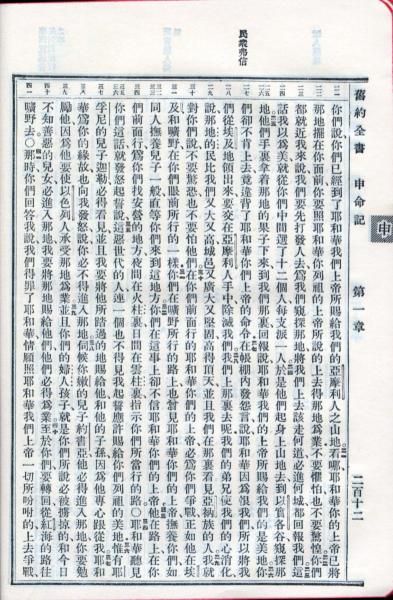 民衆弗信
舊約全書 申命記 第一章 二百十二
申
你們說你們已經到了耶和華我們上帝所賜給我們的亞摩利人之山地看哪耶和華你的上帝已將
那地擺在你面前你要照耶和華你列祖的上帝所說的上去得那地爲業不要懼怕也不要驚惶你們
都就近我來說我們要先打發人去爲我們窺探那地將我們上去該走何道必進何城都回報我們這
話我以爲美就從你們中間選了十二個人每支派一人於是他們起身上山地去到以實各谷窺探那
地他們手裏拿着那地的果子下來到我們那裏回報說耶和華我們的上帝所賜給我們的是美地你
們卻不肯上去竟違背了耶和華你們上帝的命令在帳棚內發怨言說耶和華因爲恨我們所以將我
們從埃及地領出來要交在亞摩利人手中除滅我們我們上那裏去呢我們的弟兄使我們的心消化
說那地的民比我們又大又高城邑又廣大又堅固高得頂天並且我們在那裏看見亞衲族的人我就
對你們說不要驚恐也不要怕他們在你們前面行的耶和華你們的上帝必爲你們爭戰正如他在埃
及和曠野在你們眼前所行的一樣你們在曠野所行的路上也曾見耶和華你們的上帝撫養你們如
同人撫養兒子一般直等你們來到這地方你們在這事上卻不信耶和華你們的上帝他在路上在你
們前面行爲你們找安營的地方夜間在火柱裏日間在雲柱裏指示你們所當行的路○耶和華聽見
你們這話就發怒起誓說這惡世代的人連一個也不得見我起誓應許賜給你們列祖的美地惟有耶
孚尼的兒子迦勒必得看見並且我要將他所踏過的地賜給他和他的子孫因爲他專心跟從我耶和
華爲你的緣故也向我發怒說你必不得進入那地伺候你嫩的兒子約書亞他必得進入那地你要勉
勵他因爲他要使以色列人承受那地爲業並且你們的婦人孩子就是你們所說必被擄掠的和今日
不知善惡的兒女必進入那地我要將那地賜給他們他們必得爲業至於你們要轉回從紅海的路往
曠野去○那時你們回答我說我們得罪了耶和華情願照耶和華我們上帝一切所吩咐的上去爭戰